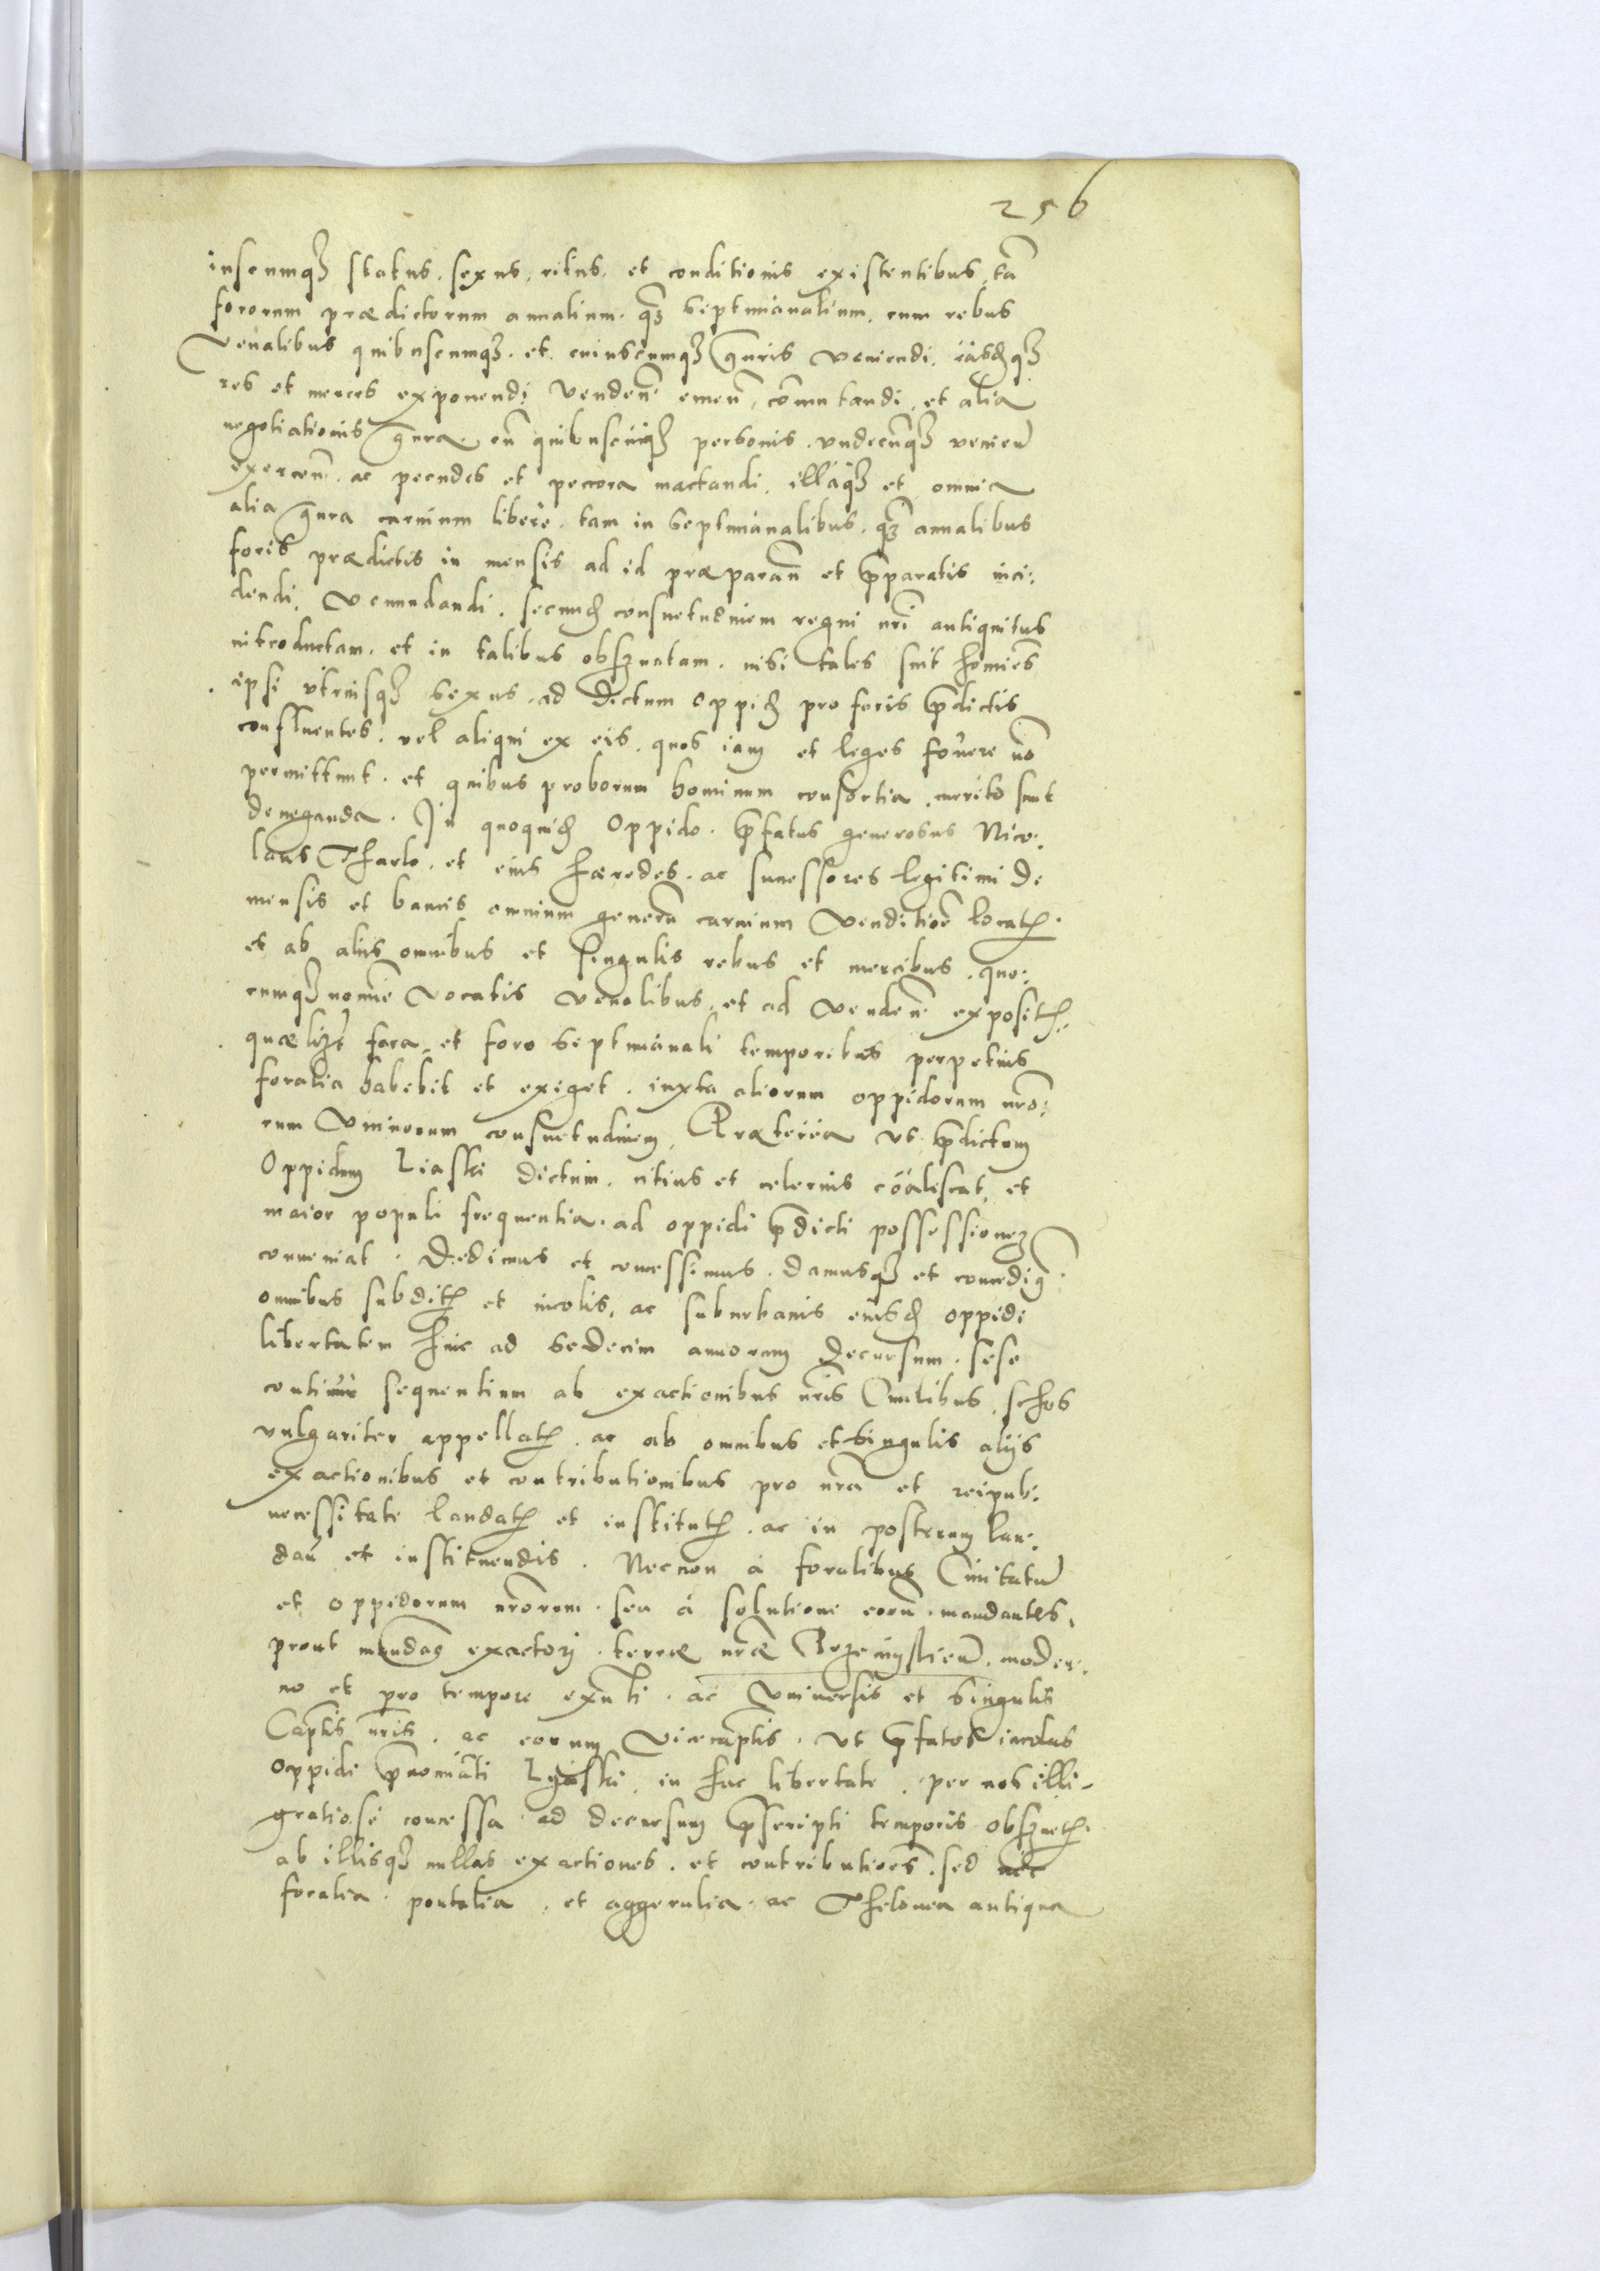 256
iuscumqȝ status, sexus, ritus, et conditionis existentibus, tā
fororum prædictorum annalium, qȝ septimanalium, cum rebus
Venalibus quibuscumqȝ, et cuiuscumqȝ gnris veniendi, easdqȝ
res et merces exponendi vendeñ emeñ, cōmutandi, et alia
negotiationis gnra cū quibuscūqȝ personis, undecūqȝ venieñ
exerceñ, ac pecudes et peccora mactandi, illaqȝ et omnia
alia gnra carnium libere, tam in septimanalibus, qȝ annalibus
foris prædictis in mensis ad id præparañ et p̄paratis inci:
dendi, venundandi, secund consuetudinem regni nr̄i antiquitus
introductam, et in talibus obseruatam, nisi tales sint homiēs
ipsi utriusqȝ sexus, ad dictum oppid pro foris p̄dictis
confluentes, vel aliqui ex eis, quos iam et leges fouere nō
permittunt, et quibus proborum hominum consortia, merito sunt
deneganda. In quoquid Oppido, p̄fatus generosus Nico:
laus Tharlo, et eius hæredes, ac successores legitimi de
mensis et bancis omnium generū carnium venditioē locatis.
et ab aliis omnibus et singulis rebus et mercibus, quo:
cumqȝ nomīe vocatis venalibus, et ad vendeñ expositis,
quælibet fora, et foro septimanali temporibus perpetuis
foralia habebit et exiget, iuxta aliorum oppidorum nr̄o:
rum vicinorum consuetudinem, Præterea ut p̄dictum
Oppidum Liaski dictum, citius et celerius coalescat, et
maior populi frequentia, ad oppidi p̄dicti possessionem
conueniat. Dedimus et concessimus, damusqȝ et concedim̄
omnibus subditis et incolis, ac suburbanis eiusd oppidi
libertatem hinc ad sedecim annorum decursum, sese
continue sequentium ab exactionibus nr̄is Ciuilibus, schos
vulgariter appellatis, ac ab omnibus et singulis aliis
exactionibus et contributionibus pro nr̄a et reipub:
necessitate laudatis et institutis, ac in posterum lau:
dañ et instituendis. Necnon à foralibus Ciuitatū
et oppidorum nr̄orum, seu à solutione eorū, mandantes,
prout mandam̄ exactori, terræ nr̄æ Przemyslieñ, moder:
no et pro tempore exn̄ti, ac vniuersis et singulis
Capitis nr̄is, ac eorum vicecaptis, ut p̄fatos incolas
oppidi p̄nominati Lyaski, in hac libertate, per nos illi
gratiose concessa ad decursum p̄scripti temporis obseruetis
ab illisqȝ nullas exactiones, et contributioēs, sed nec
foralia, pontalia, et aggeralia, ac Thelonea antiqua